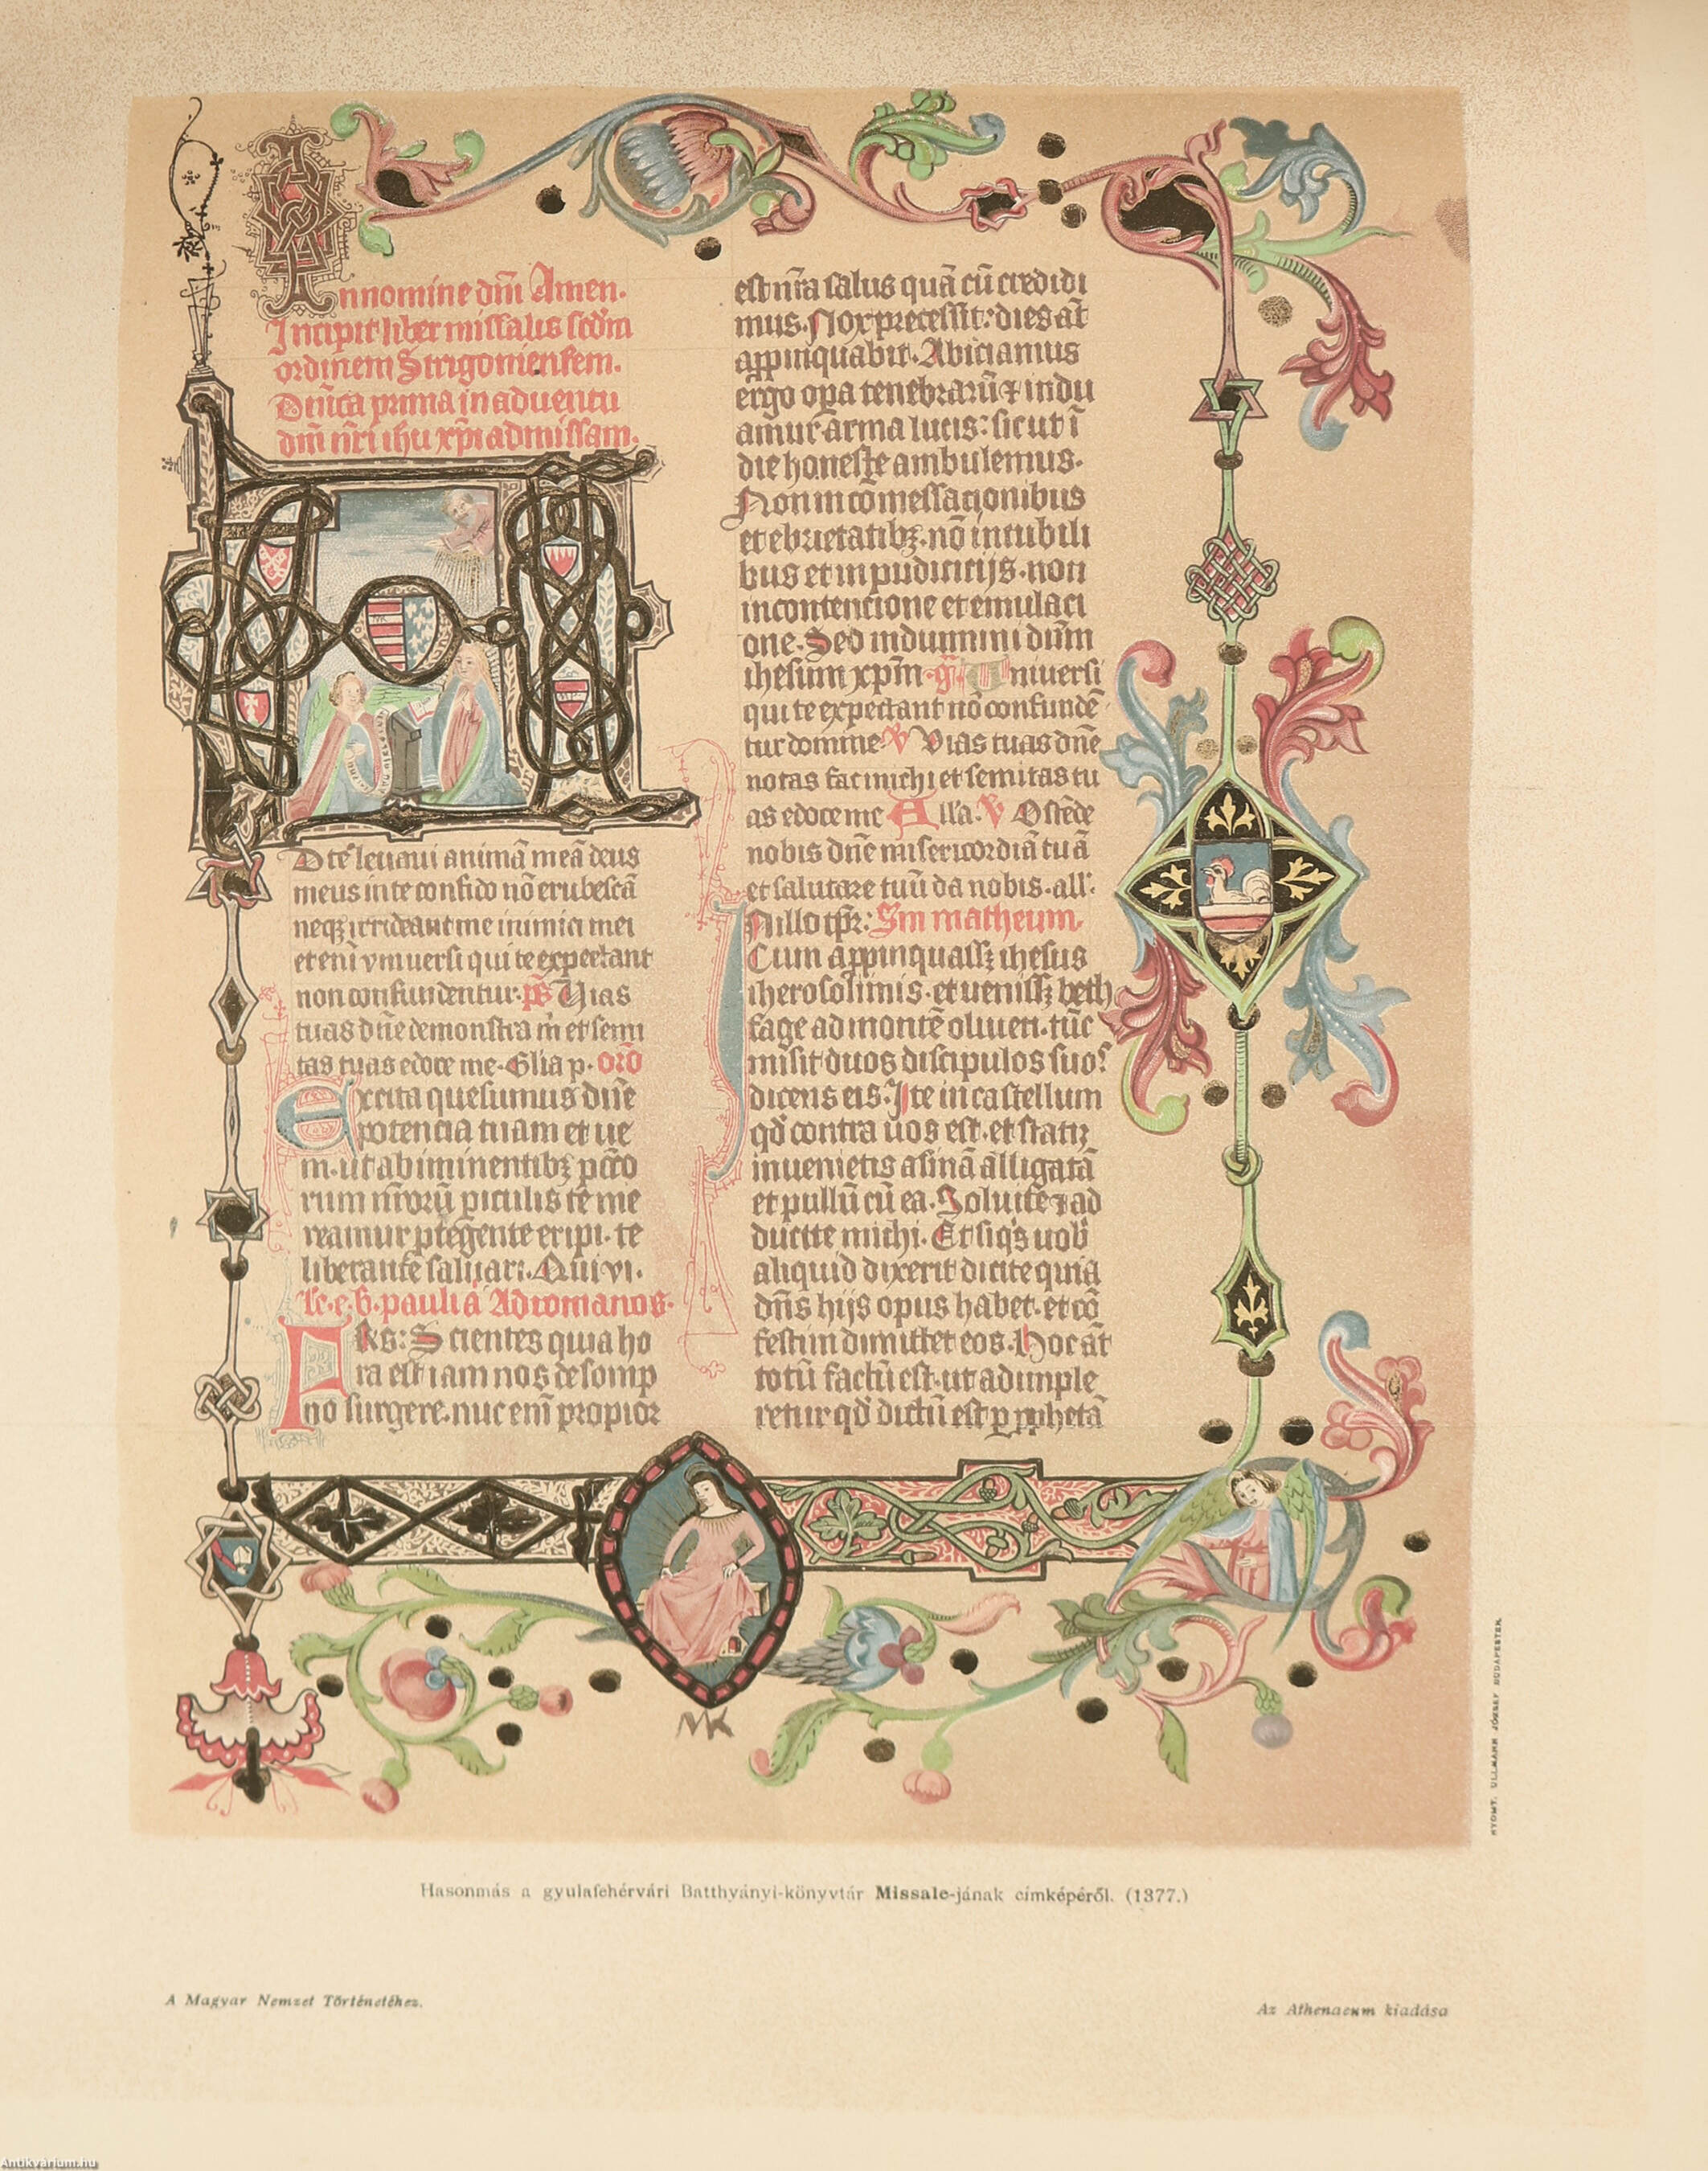 Innomine dm̄ Amen.
Incipit liber missalis scd̄m
ordinem Strigoniensem.
Dn̄ica prima in aduentu
dm̄ nr̄i ihu xp̄i ad missam.
Dte leuaui animā meā deus
meus in te confido nō erubescā
neqꝫ irrideant me inimici mei
et enī vniuersi qui te expectant
non confundentur. ps̄ Vias
tuas dn̄e demonstra m̄ et semi
tas tuas edoce me. Glia p. or̄o
Excita quesumus dn̄e
potencia tuam et ue
ni. ut ab iminentibꝫ pcc̄o
rum nr̄orū piculis te me
reamur ptegente eripi. te
liberante saluari. Qui vi.
Lc. e. b. pauli a Ad romanos.
Frs: Scientes quia ho
ra est iam nos de somp
no surgere. nuc enī propior
est nr̄a salus quā cū credidi
mus. Nox precessit: dies at̄
appinquabit. Abiciamus
ergo opa tenebrarū ⁊ indu
amur arma lucis: sicut ī
die honeste ambulemus.
Non in cōmessacionibus
et ebrietatibꝫ. nō in cubili
bus et inpudicicijs. non
in contencione et emulaci
one. Sed induimini dn̄m
ihesum xpm̄. gr̄ Uniuersi
qui te expectant nō confundē
tur domine. V Vias tuas dn̄e
notas fac michi et semitas tu
as edoce me Alla. V Ostēde
nobis dn̄e misericordiā tuā
et salutare tuū da nobis. all:
In illo tpr̄: Sm matheum.
Cum appinquassꝫ ihesus
iherosolimis. et uenissꝫ beth
fage ad montē oliueti. tūc
misit duos discipulos suos
dicens eis. Ite in castellum
qd̄ contra uos est. et statiꝫ
inuenietis asinā alligatā
et pullū cū ea. Soluite ⁊ ad
ducite michi. Et siqs uob̄
aliquid dixerit dicite quia
dn̄s hijs opus habet. et cō
festim dimittet eos. Hoc at̄
totū factū est. ut adimple
retur qd̄ dictū est p pphetā
MK
NYOMT. ULLMANN JÓZSEF BUDAPESTEN.
Hasonmás a gyulafehérvári Batthyányi-könyvtár Missale-jának címképéről. (1377.)
A Magyar Nemzet Történetéhez.
Az Athenaeum kiadása
Antikvárium.hu